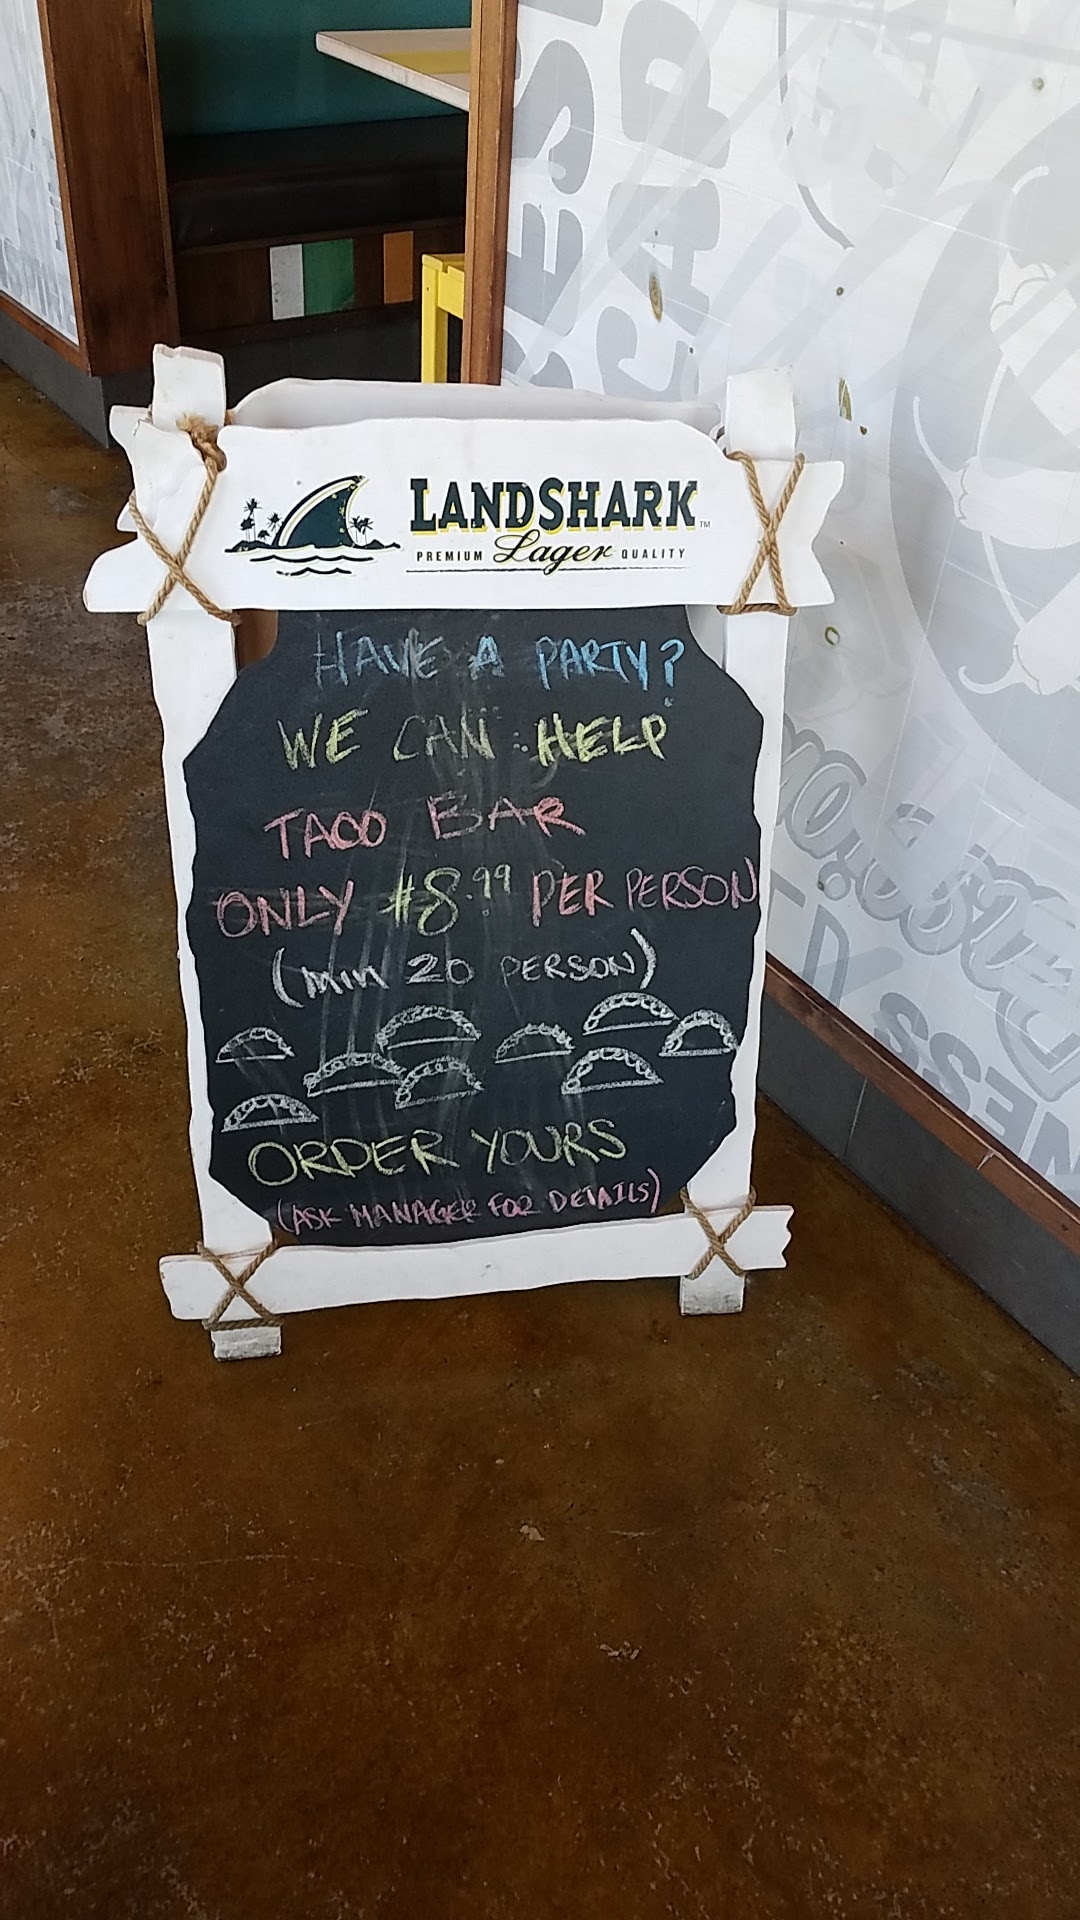 LANDSHARK TM
PREMIUM Lager QUALITY
HAVE A PARTY?
WE CAN HELP
TACO BAR
ONLY #8.99 PER PERSON
(MIN 20 PERSON)
ORDER YOURS
(ASK MANAGER FOR DETAILS)